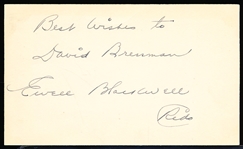 Best Wishes to
David Brennan
Ewell Blackwell
Reds